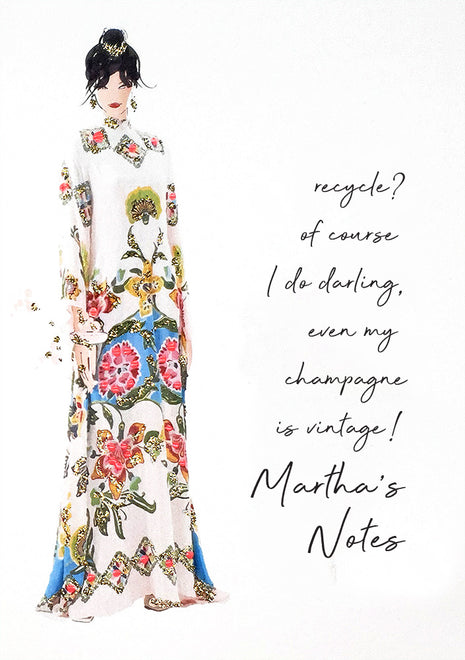 recycle?
of course
I do darling,
even my
champagne
is vintage!
Martha's
Notes